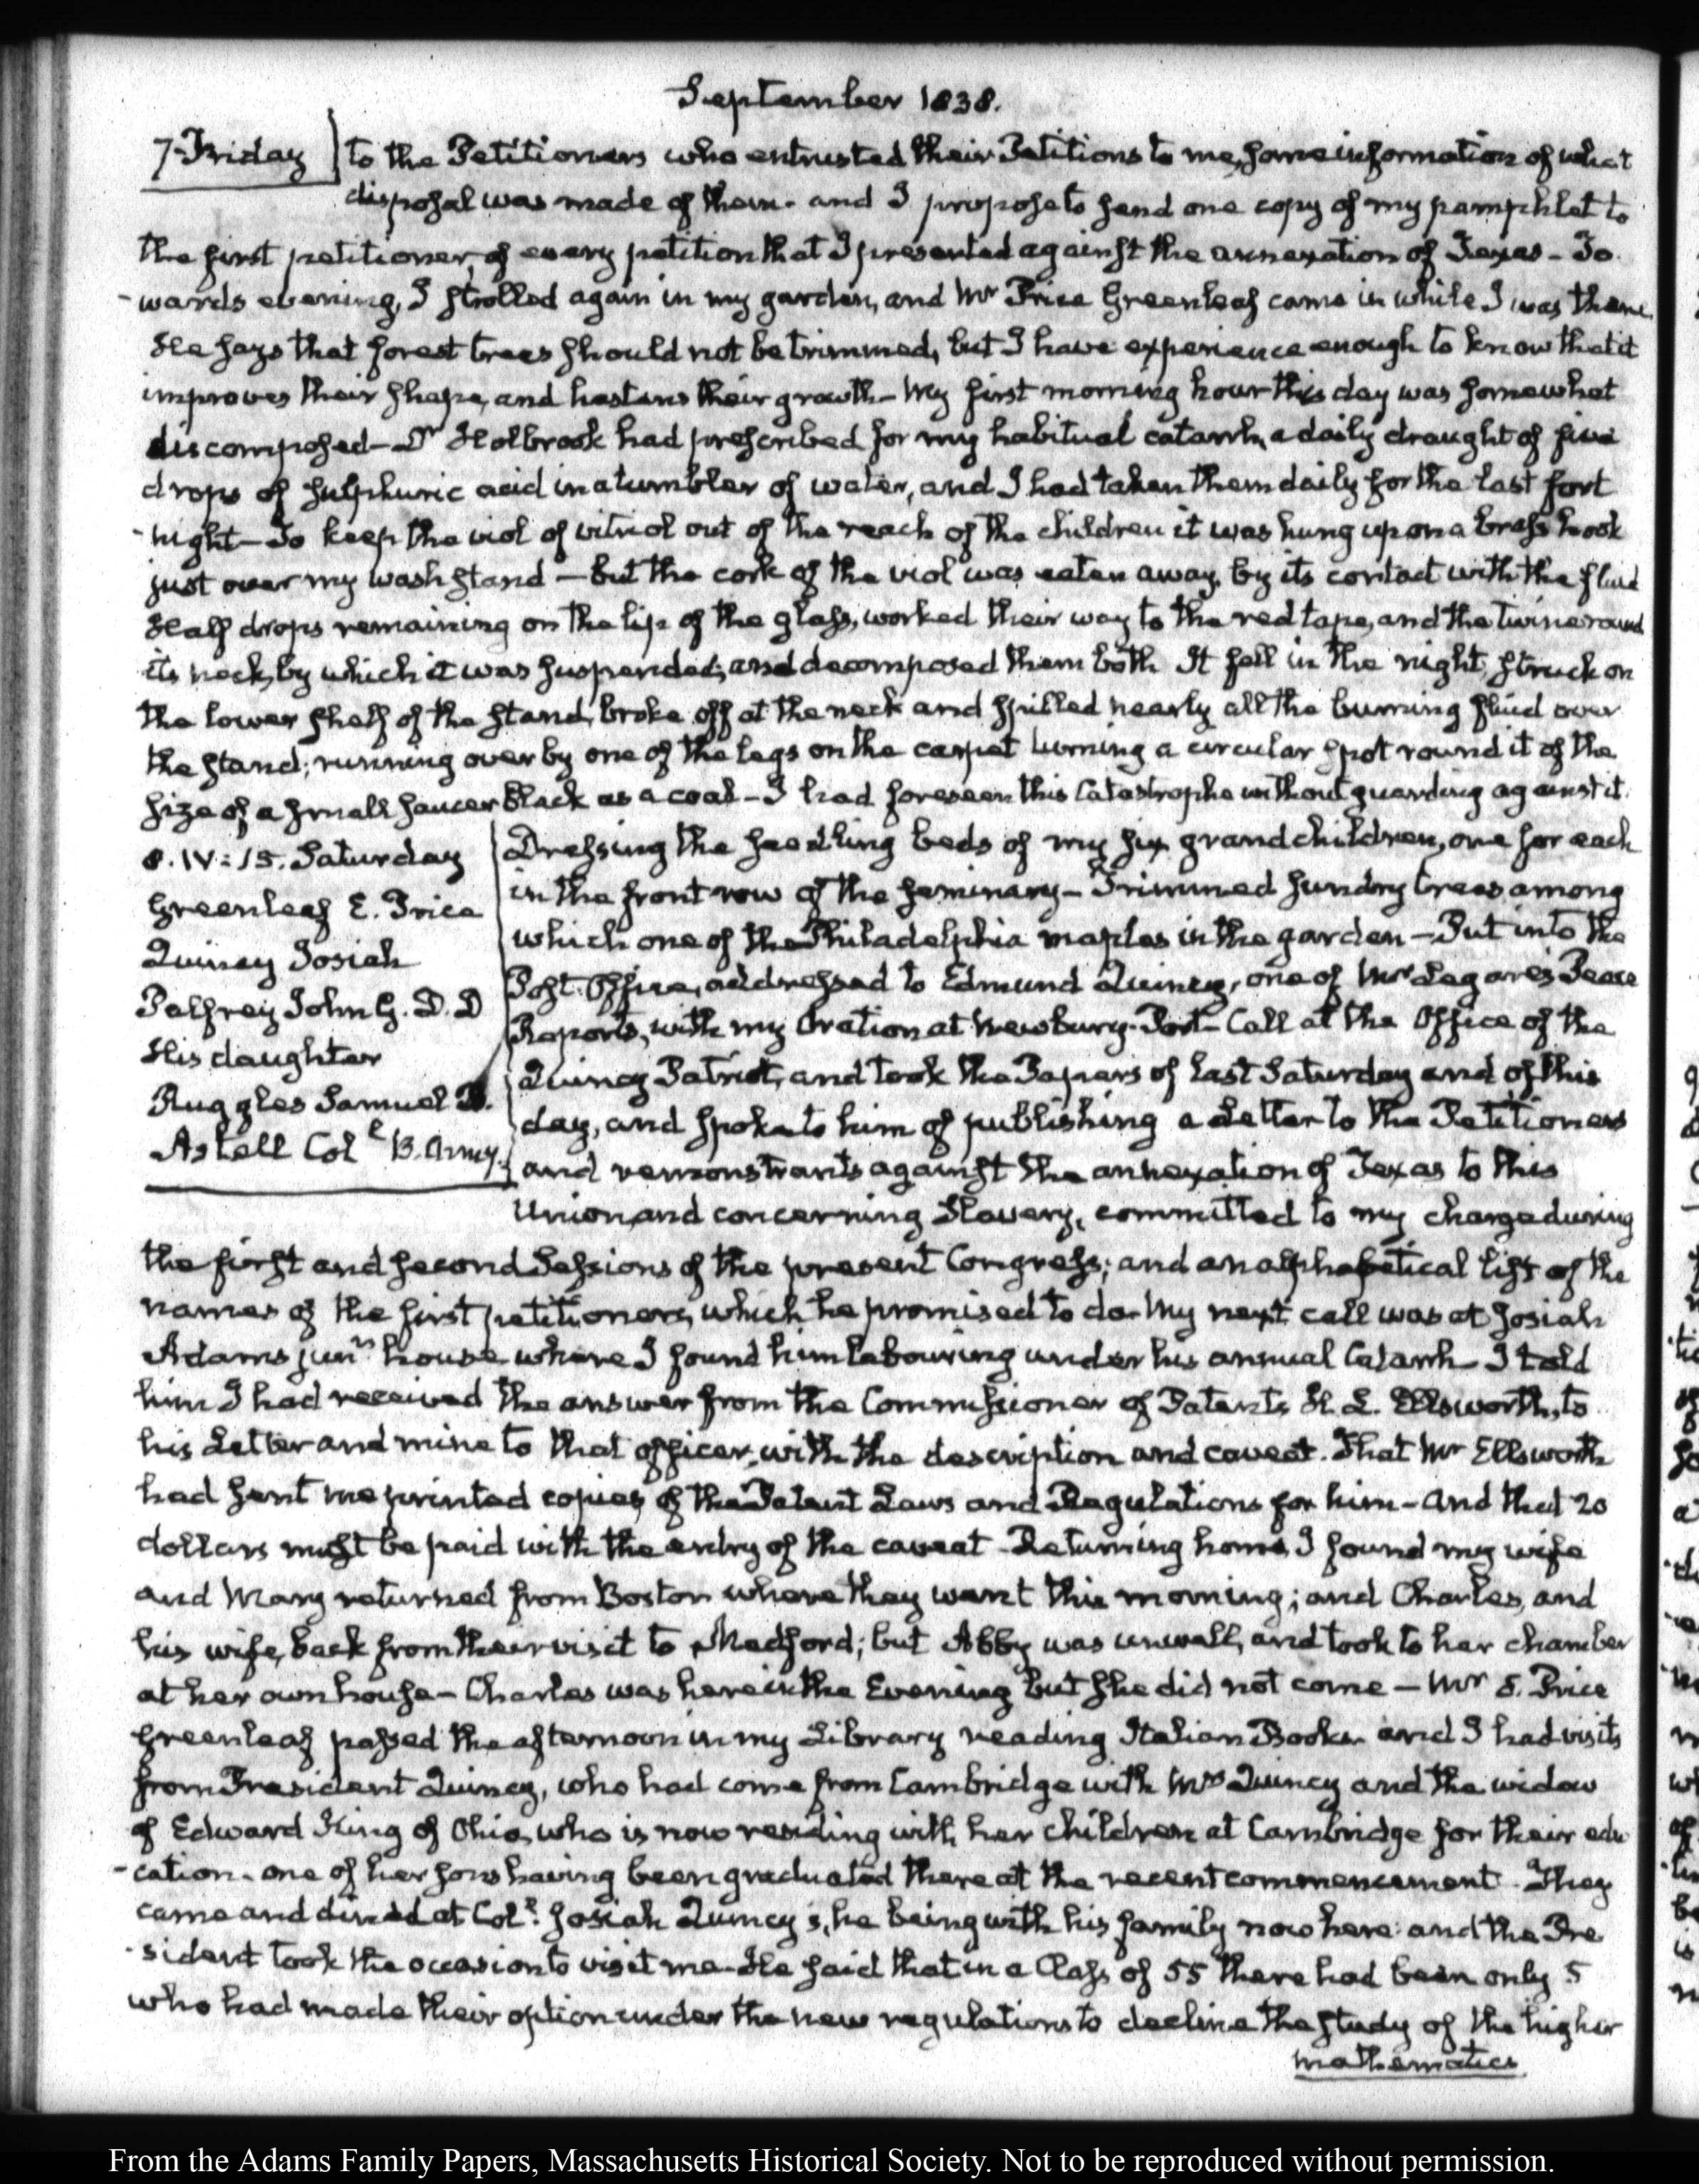 September 1838.
7 Friday
to the Petitioners who entrusted their Petitions to me, some information of what
disposal was made of them. and I propose to send one copy of my pamphlet to
the first petitioner, of every petition that I presented against the annexation of Texas - To
-wards evening, I strolled again in my garden, and Mr Price Greenleaf came in while I was there.
He says that forest trees should not be trimmed, but I have experience enough to know that it
improves their shape, and hastens their growth - My first morning hour this day was somewhat
discomposed - Dr Holbrook had prescribed for my habitual catarrh, a daily draught of five
drops of sulphuric acid in a tumbler of water, and I had taken them daily for the last fort
-night - To keep the viol of vitriol out of the reach of the children it was hung up on a brass hook
just over my wash stand - but the cork of the viol was eaten away, by its contact with the fluid
Half drops remaining on the lip of the glass, worked their way to the red tape, and the twine round
its neck, by which it was suspended; and decomposed them both. It fell in the night, struck on
the lower shelf of the stand, broke off at the neck and spilled nearly all the burning fluid over
the stand; running over by one of the legs on the carpet burning a circular spot round it of the
size of a small saucer black as a coal - I had foreseen this Catastrophe without guarding against it.
8. IV:15. Saturday
Greenleaf E. Price
Quincy Josiah
Palfrey John G. D. D
His daughter
Ruggles Samuel B.
Astell Col. B. Army.
Dressing the seedling beds of my six grandchildren, one for each
in the front row of the seminary - Trimmed sundry trees among
which one of the Philadelphia maples in the garden - Put into the
Post-Office, addressed to Edmund Quincy, one of Mr Legare's Peace
Reports, with my Oration at Newbury-Port - Call at the Office of the
Quincy Patriot, and took the Papers of last Saturday and of this
day, and spoke to him of publishing a Letter to the Petitioners
and remonstrants against the annexation of Texas to this
Union, and concerning Slavery, committed to my charge during
the first and second Sessions of the present Congress; and an alphabetical list of the
names of the first petitioners, which he promised to do. My next call was at Josiah
Adams junr's house where I found him labouring under his annual Catarrh - I told
him I had received the answer from the Commissioner of Patents H. L. Ellsworth, to
his Letter and mine to that officer, with the description and caveat. That Mr Ellsworth
had sent me printed copies of the Patent Laws and Regulations for him - and that 20
dollars must be paid with the entry of the caveat - Returning home, I found my wife
and Mary returned from Boston where they went this morning; and Charles, and
his wife, back from their visit to Medford; but Abby was unwell, and took to her chamber
at her own house - Charles was here in the Evening but she did not come - Mr E. Price
Greenleaf passed the afternoon in my Library reading Italian Books. and I had visits
from President Quincy, who had come from Cambridge with Mrs Quincy and the widow
of Edward King of Ohio, who is now residing with her children at Cambridge for their edu
-cation. one of her sons having been graduated there at the recent commencement. They
came and dined at Coll. Josiah Quincy's, he being with his family now here: and the Pre
-sident took the occasion to visit me. He said that in a Class of 55 there had been only 5
who had made their option under the new regulations to decline the study of the higher
mathematics
From the Adams Family Papers, Massachusetts Historical Society. Not to be reproduced without permission.